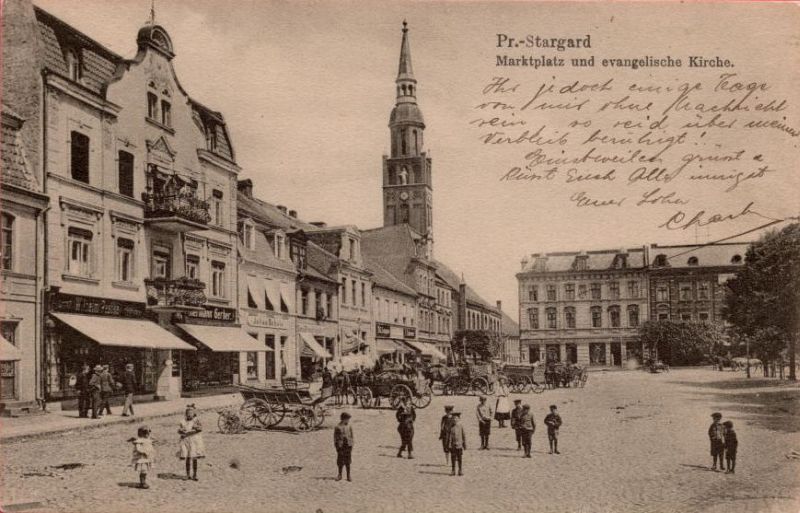 Pr.-Stargard
Marktplatz und evangelische Kirche.
Ihr jedoch einige Tage
von mir ohne Nachricht
sein so seid über meinen
Verbleib beruhigt!
Einstweilen grüsst &
küsst Euch Alle innigst
Euer Sohn
Gerber.